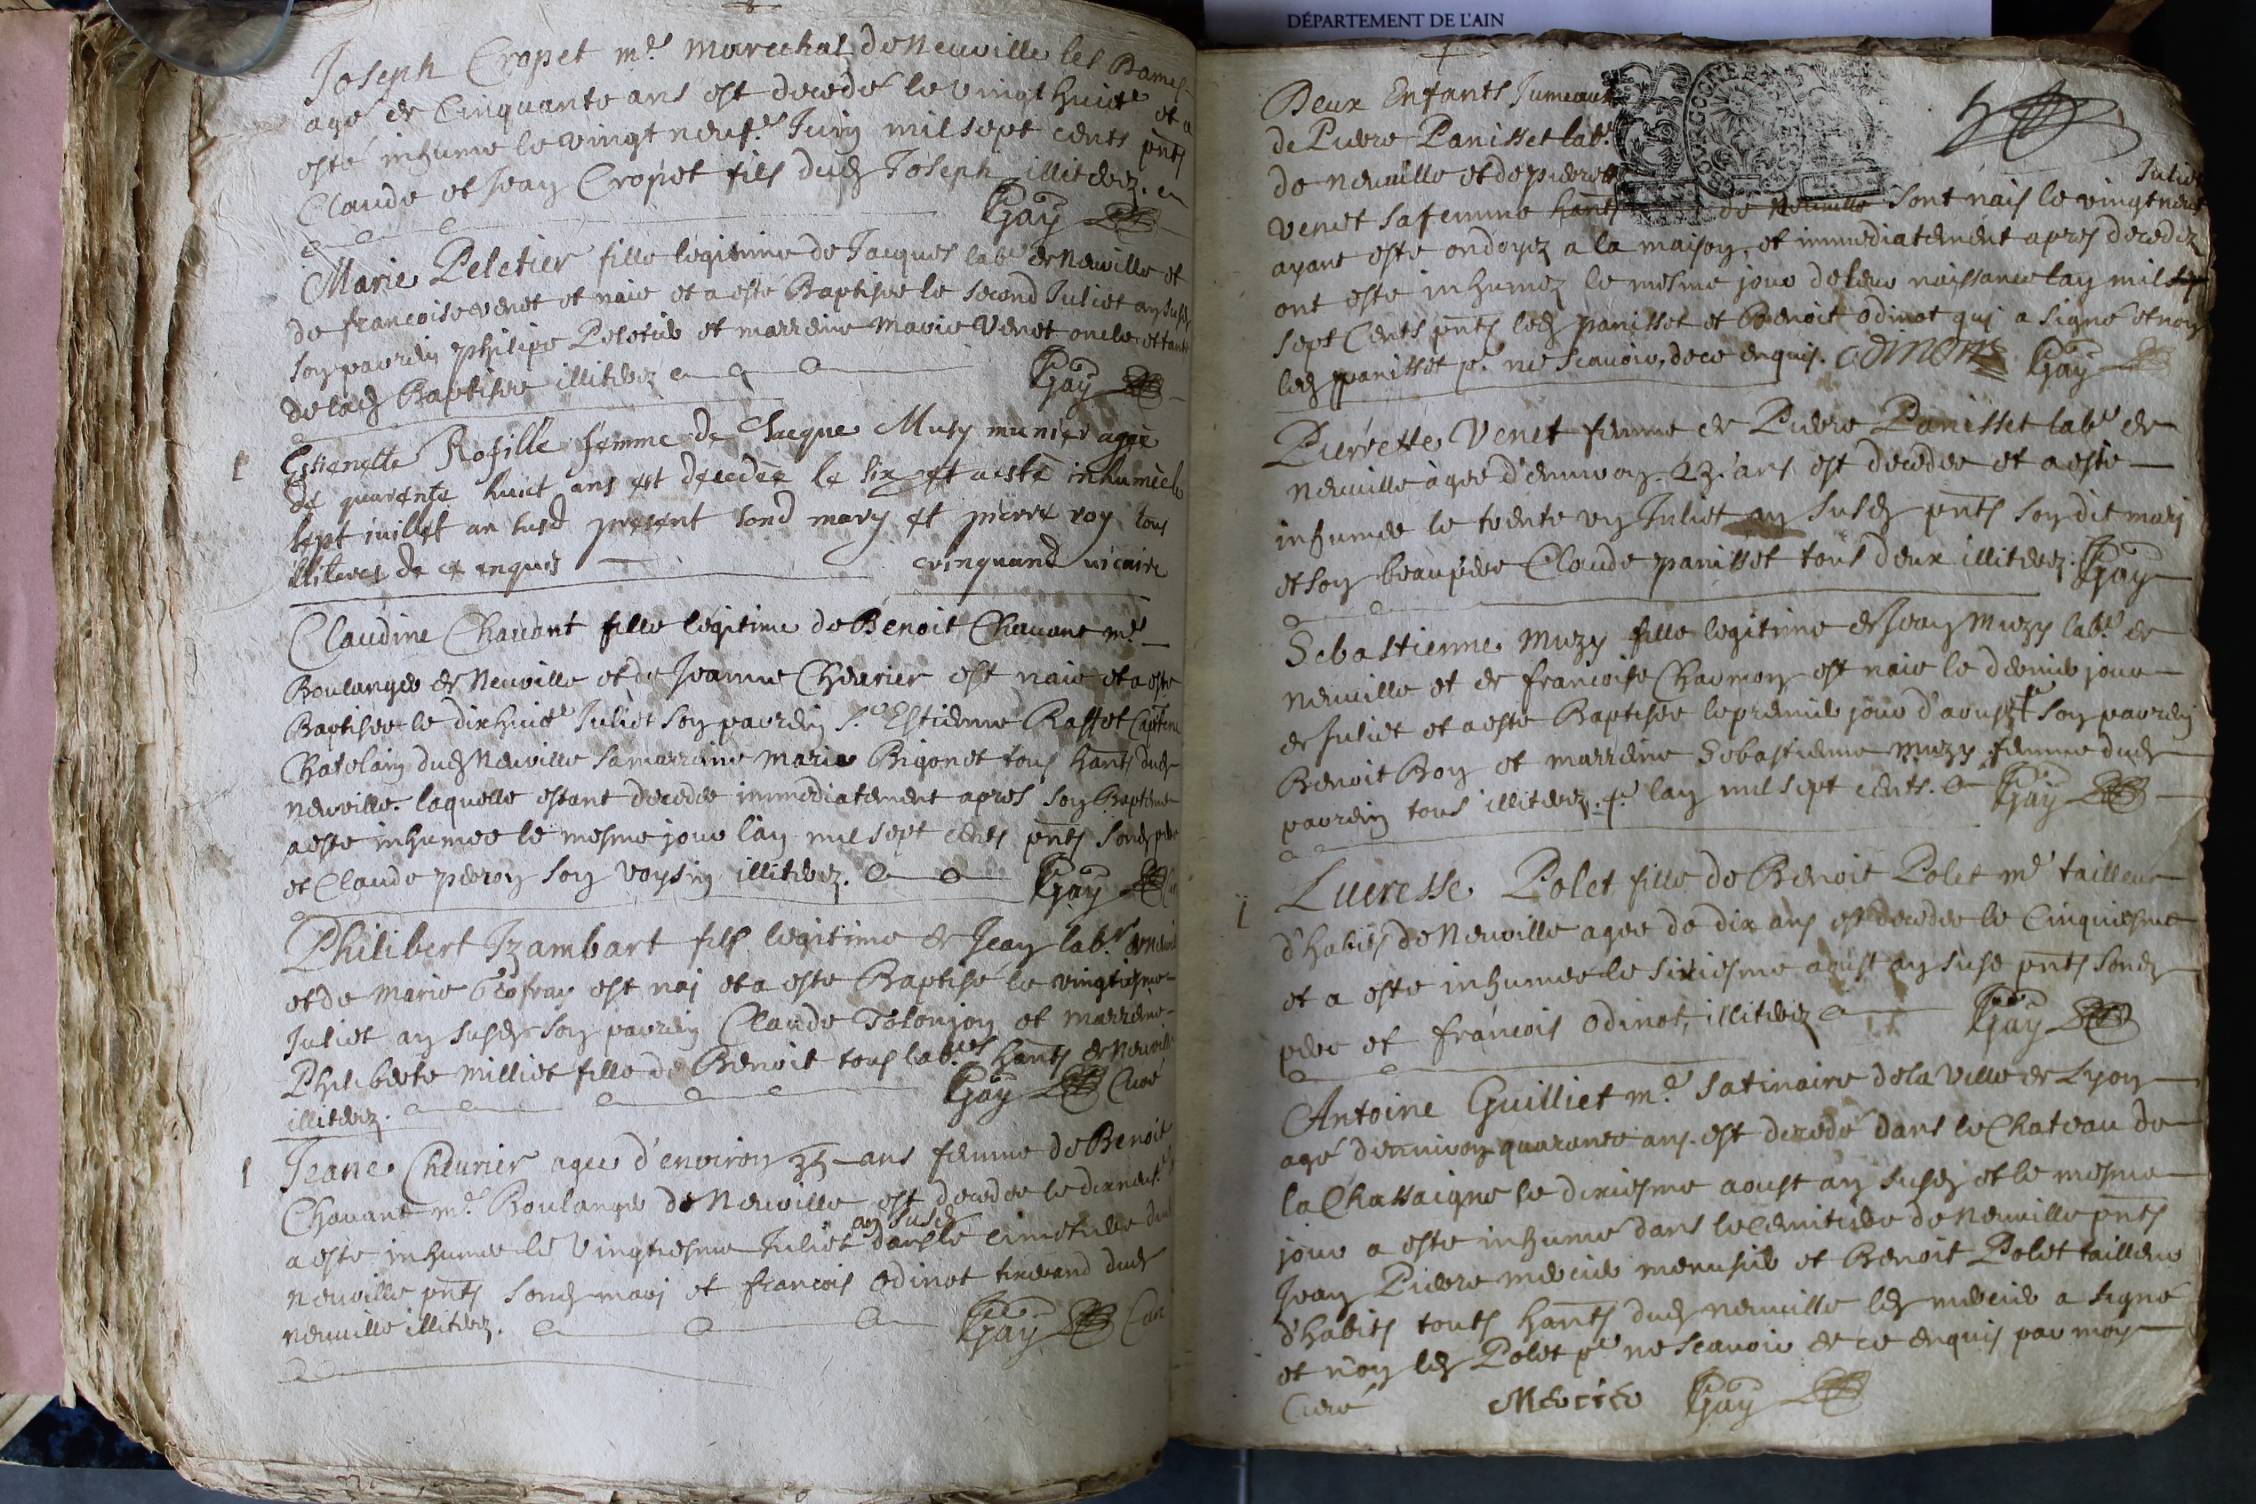 Joseph Cropet m.e marechal de Neuville les Dames
agé de Cinquante ans est decedé le vingt huict.e et a
esté inhumé le vingt neuf.e Juin mil sept cents pnts
Claude et Jean Cropet fils dud Joseph illiterez.
Gay
Marie Peletier fille legitime de Jacques lab.r de Neuville et
de francoise venet et naie et a esté Baptisee le second Juliet an susd
son parrein philipe Peletier et marreine Marie Venet oncle et tante
de lad Baptisee illiterez
Gay
1 Estienette Rofille femme de Jacque Musy munier agée
de quarente huict ans est decedee le six et a esté inhumée le
sept iuillet an susd present sond mary et pierre roy tous
illiteres de ce enquis
crinquand vicaire
Claudine Chavant fille legitime de Benoit Chavant m.e
Boulanger de Neuville et de Jeanne Chevrier est naie et a esté
Baptisee le dixhuict.e Juliet son parrein s.r Estienne Raffet Captne
Chatelain dud Neuville sa marreine Marie Bigonet tous hants dud
neuville. laquelle estant decedee immediatement apres son Bapteme
a esté inhumee le mesme jour l'an mil sept cents pnts sond pere
et Claude peron son voysin illiterez.
Gay
Philibert Izambart fils legitime de Jean lab.r de Neuville
et de Marie Geofray est nai et a esté Baptisé le vingtiesme
Juliet an susd son parrein Claude Tolonjon et marreine
Philiberte Milliet fille de Benoit tous lab.rs hants de Neuville
illiterez.
Gay Curé
1 Jeane Chevrier agee d'environ 35 ans femme de Benoit
Chavant m.e Boulanger de Neuville est decedee le dixneuf.e
a esté inhumee le vingtiesme Juliet an susd dans le cimetiere dud
Neuville pnts sond mari et francois Odinot tixerand dud
neuville illiterez.
Gay Curé
DÉPARTEMENT DE L'AIN
Deux Enfants Jumeaux
de Pierre Panisset lab.r
de neuville et de pierrette
venet sa femme hants de Neuville sont nais le vingt neuf Juliet
ayant esté ondoyez a la maison, et immediatement apres decedez
ont esté inhumez le mesme jour de leur naissance lan mil
sept Cents pnts led panisset et Benoit Odinot qui a signé et non
led panisset p.r ne scavoir, de ce enquis. odinot
Gay
Pierrette Venet femme de Pierre Panisset lab.r de
neuville agee d'environ 23 ans est decedee et a esté
inhumee le trente un Juliet an susd pnts son dit mari
et son beaupere Claude panisset tous deux illiterez.
Gay
Sebastienne Muzy fille legitime de Jean Muzy lab.r de
neuville et de francoise Chaumon est naie le dernier jour
de Juliet et a esté Baptisee le premier jour d'aoust son parrein
Benoit Boy et marreine Sebastienne Muzy femme dud
parrein tous illiterez lan mil sept cents.
Gay
1 Lucresse Polet fille de Benoit Polet m.e tailleur
d'habits de Neuville agee de dix ans est decedee le Cinquiesme
et a esté inhumee le sixiesme aoust an susd pnts sond
pere et francois Odinot, illiterez
Gay
Antoine Guilliet m.e satinaire de la ville de Lyon
agé d'environ quarente ans est decedé dans le Chateau de
la Chassaigne le dixiesme aoust an susd et le mesme
jour a esté inhumé dans le cemitiere de Neuville pnts
Jean Pierre mercier menusier et Benoit Polet tailleur
d'habits touts hants dud neuville led mercier a signé
et non led Polet p.r ne scavoir de ce enquis par moy
Curé Mercier Gay